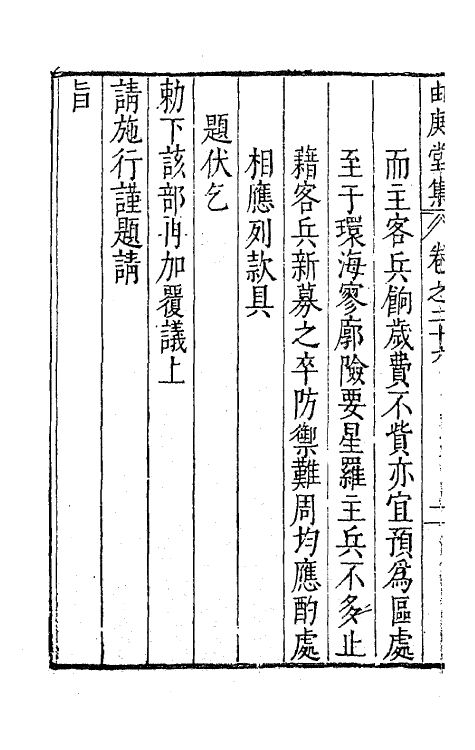 由庚堂集 卷之三十六
而主客兵餉歲費不貲亦宜預爲區處
至于環海寥廓險要星羅主兵不多止
藉客兵新募之卒防禦難周均應酌處
相應列款具
題伏乞
勅下該部再加覆議上
請施行謹題請
旨